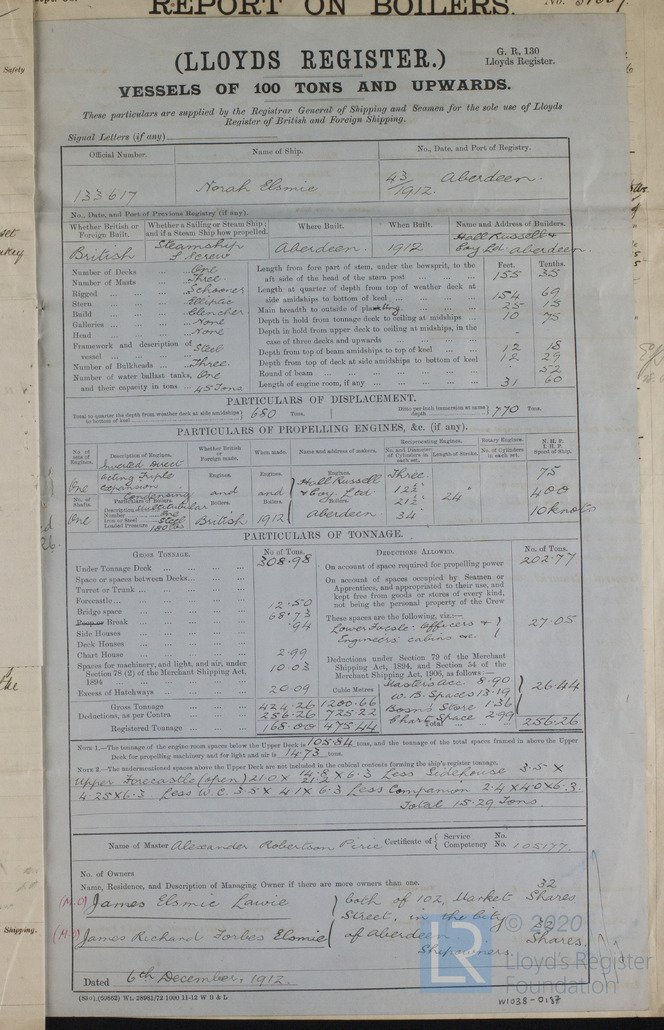 REPORT ON BOILERS.
(LLOYDS REGISTER.)
G. R. 130
Lloyds Register.
VESSELS OF 100 TONS AND UPWARDS.
These particulars are supplied by the Registrar General of Shipping and Seamen for the sole use of Lloyds
Register of British and Foreign Shipping.
Signal Letters (if any)
Official Number. Name of Ship. No., Date, and Port of Registry.
133617 Norah Elsmie 43/1912. Aberdeen.
No., Date, and Port of Previous Registry (if any).
Whether British or Foreign Built. Whether a Sailing or Steam Ship; and if a Steam Ship how propelled. Where Built. When Built. Name and Address of Builders.
British Steamship S Screw Aberdeen. 1912 Hall Russell & Coy Ld Aberdeen
Number of Decks ... One
Number of Masts ... Three.
Rigged ... Schooner
Stern ... Elliptic
Build ... Clencher
Galleries ... None
Head ... None
Framework and description of vessel ... Steel
Number of Bulkheads ... Three.
Number of water ballast tanks, One
and their capacity in tons ... 45 Tons
Feet. Tenths.
Length from fore part of stem, under the bowsprit, to the aft side of the head of the stern post 155 35
Length at quarter of depth from top of weather deck at side amidships to bottom of keel ... 154 69
Main breadth to outside of plating 25 15
Depth in hold from tonnage deck to ceiling at midships ... 10 75
Depth in hold from upper deck to ceiling at midships, in the case of three decks and upwards
Depth from top of beam amidships to top of keel ... 12 18
Depth from top of deck at side amidships to bottom of keel 12 29
Round of beam ... 52
Length of engine room, if any ... 31 60
PARTICULARS OF DISPLACEMENT.
Total to quarter the depth from weather deck at side amidships to bottom of keel } 680 Tons. Ditto per inch immersion at same depth } 770 Tons.
PARTICULARS OF PROPELLING ENGINES, &c. (if any).
No. of sets of Engines. Description of Engines. Whether British or Foreign made. When made. Name and address of makers. Reciprocating Engines. Rotary Engines. N. H. P. I. H. P. Speed of Ship.
No. and Diameter of Cylinders in each set. Length of Stroke. No. of Cylinders in each set.
One Inverted Direct Acting Triple Expansion Condensing Engines. Engines. Hall Russell & Coy Ltd Aberdeen Three 12½" 21½" 34" 24" 75 400 10 knots
No. of Shafts. Particulars of Boilers.
One Description Multitubular Number One Iron or Steel Steel Loaded Pressure 180 lbs and Boilers. British and Boilers. 1912
PARTICULARS OF TONNAGE.
GROSS TONNAGE. No of Tons.
Under Tonnage Deck ... 308.98
Space or spaces between Decks...
Turret or Trunk ...
Forecastle ... 12.50
Bridge space ... 68.73
Break ... .94
Side Houses
Deck Houses
Chart House ... 2.99
Spaces for machinery, and light, and air, under Section 78 (2) of the Merchant Shipping Act, 1894 ... 10.03
Excess of Hatchways ... 20.09
Cubic Metres
Gross Tonnage ... 424.26 1200.66
Deductions, as per Contra ... 256.26 725.22
Registered Tonnage ... 168.00 475.44
DEDUCTIONS ALLOWED. No. of Tons.
On account of space required for propelling power 202.77
On account of spaces occupied by Seamen or Apprentices, and appropriated to their use, and kept free from goods or stores of every kind, not being the personal property of the Crew
These spaces are the following, viz.:—
Lower Focsle: Officers & Engineers cabins &c. 27.05
Deductions under Section 79 of the Merchant Shipping Act, 1894, and Section 54 of the Merchant Shipping Act, 1906, as follows:—
Masters acc. 8.90
W. B. Spaces 13.19
Bosn's Store 1.36
Chart Space 2.99
26.44
Total ... 256.26
NOTE 1.—The tonnage of the engine room spaces below the Upper Deck is 105.84 tons, and the tonnage of the total spaces framed in above the Upper
Deck for propelling machinery and for light and air is 14.73 tons.
NOTE 2.—The undermentioned spaces above the Upper Deck are not included in the cubical contents forming the ship's register tonnage.
Upper Forecastle (open) 21.0 X X 6.3 Less Sidehouse 3.5 X
4.25 X 6.3 Less W.C. 3.5 X 4.1 X 6.3 Less Companion 2.4 X 4.0 X 6.3.
Total 15.29 Tons.
Name of Master Alexander Robertson Pirie Certificate of { Service No. Competency No. 105177.
No. of Owners
Name, Residence, and Description of Managing Owner if there are more owners than one.
(M.O) James Elsmie Lawie both of 102, Market 32 Shares
Street, in the City
(M.O) James Richard Forbes Elsmie of Aberdeen 32 Shares.
Shipowners.
Dated 6th December, 1912.
© 2020
Lloyd's Register
Foundation
W1038-0187
Safety
Shipping.
the